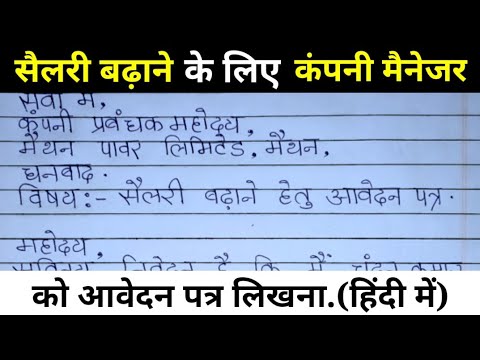 सैलरी बढ़ाने के लिए कंपनी मैनेजर
सेवा में,
कंपनी प्रबंधक महोदय,
मैथन पावर लिमिटेड, मैथन,
धनबाद.
विषय:- सैलरी बढ़ाने हेतु आवेदन पत्र.
महोदय,
सविनय निवेदन है कि मैं चंदन कुमार
को आवेदन पत्र लिखना.(हिंदी में)